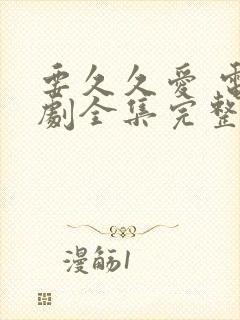 要久久爱 電
劇全集完整
漫觞1